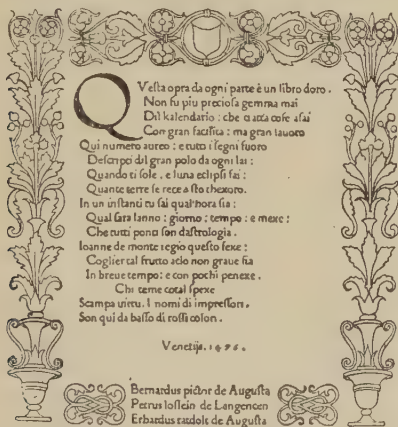 QVesta opra da ogni parte è un libro doro.
Non fu piu preciosa gemma mai
Dil kalendario : che tratta cose asai
Con gran facilita : ma gran lauoro
Qui numero aureo : e tutti i segni fuoro
Descripti dil gran polo da ogni lai :
Quando il sole . e luna eclipsi fai :
Quante terre se rece a sto thexoro .
In un instanti tu sai qual'hora sia :
Qual sara lanno : giorno : tempo : e mexe :
Che tutti ponti son dastrologia .
Ioanne de monte regio questo fexe :
Coglier tal frutto acio non graue sia
In breue tempo : e con pochi penexe .
Chi teme cotal spexe
Scampa uirtu . I nomi di impressori .
Son qui da basso di rossi colori .
Venetijs . 1476 .
Bernardus pictor de Augusta
Petrus loslein de Langencen
Erhardus ratdolt de Augusta